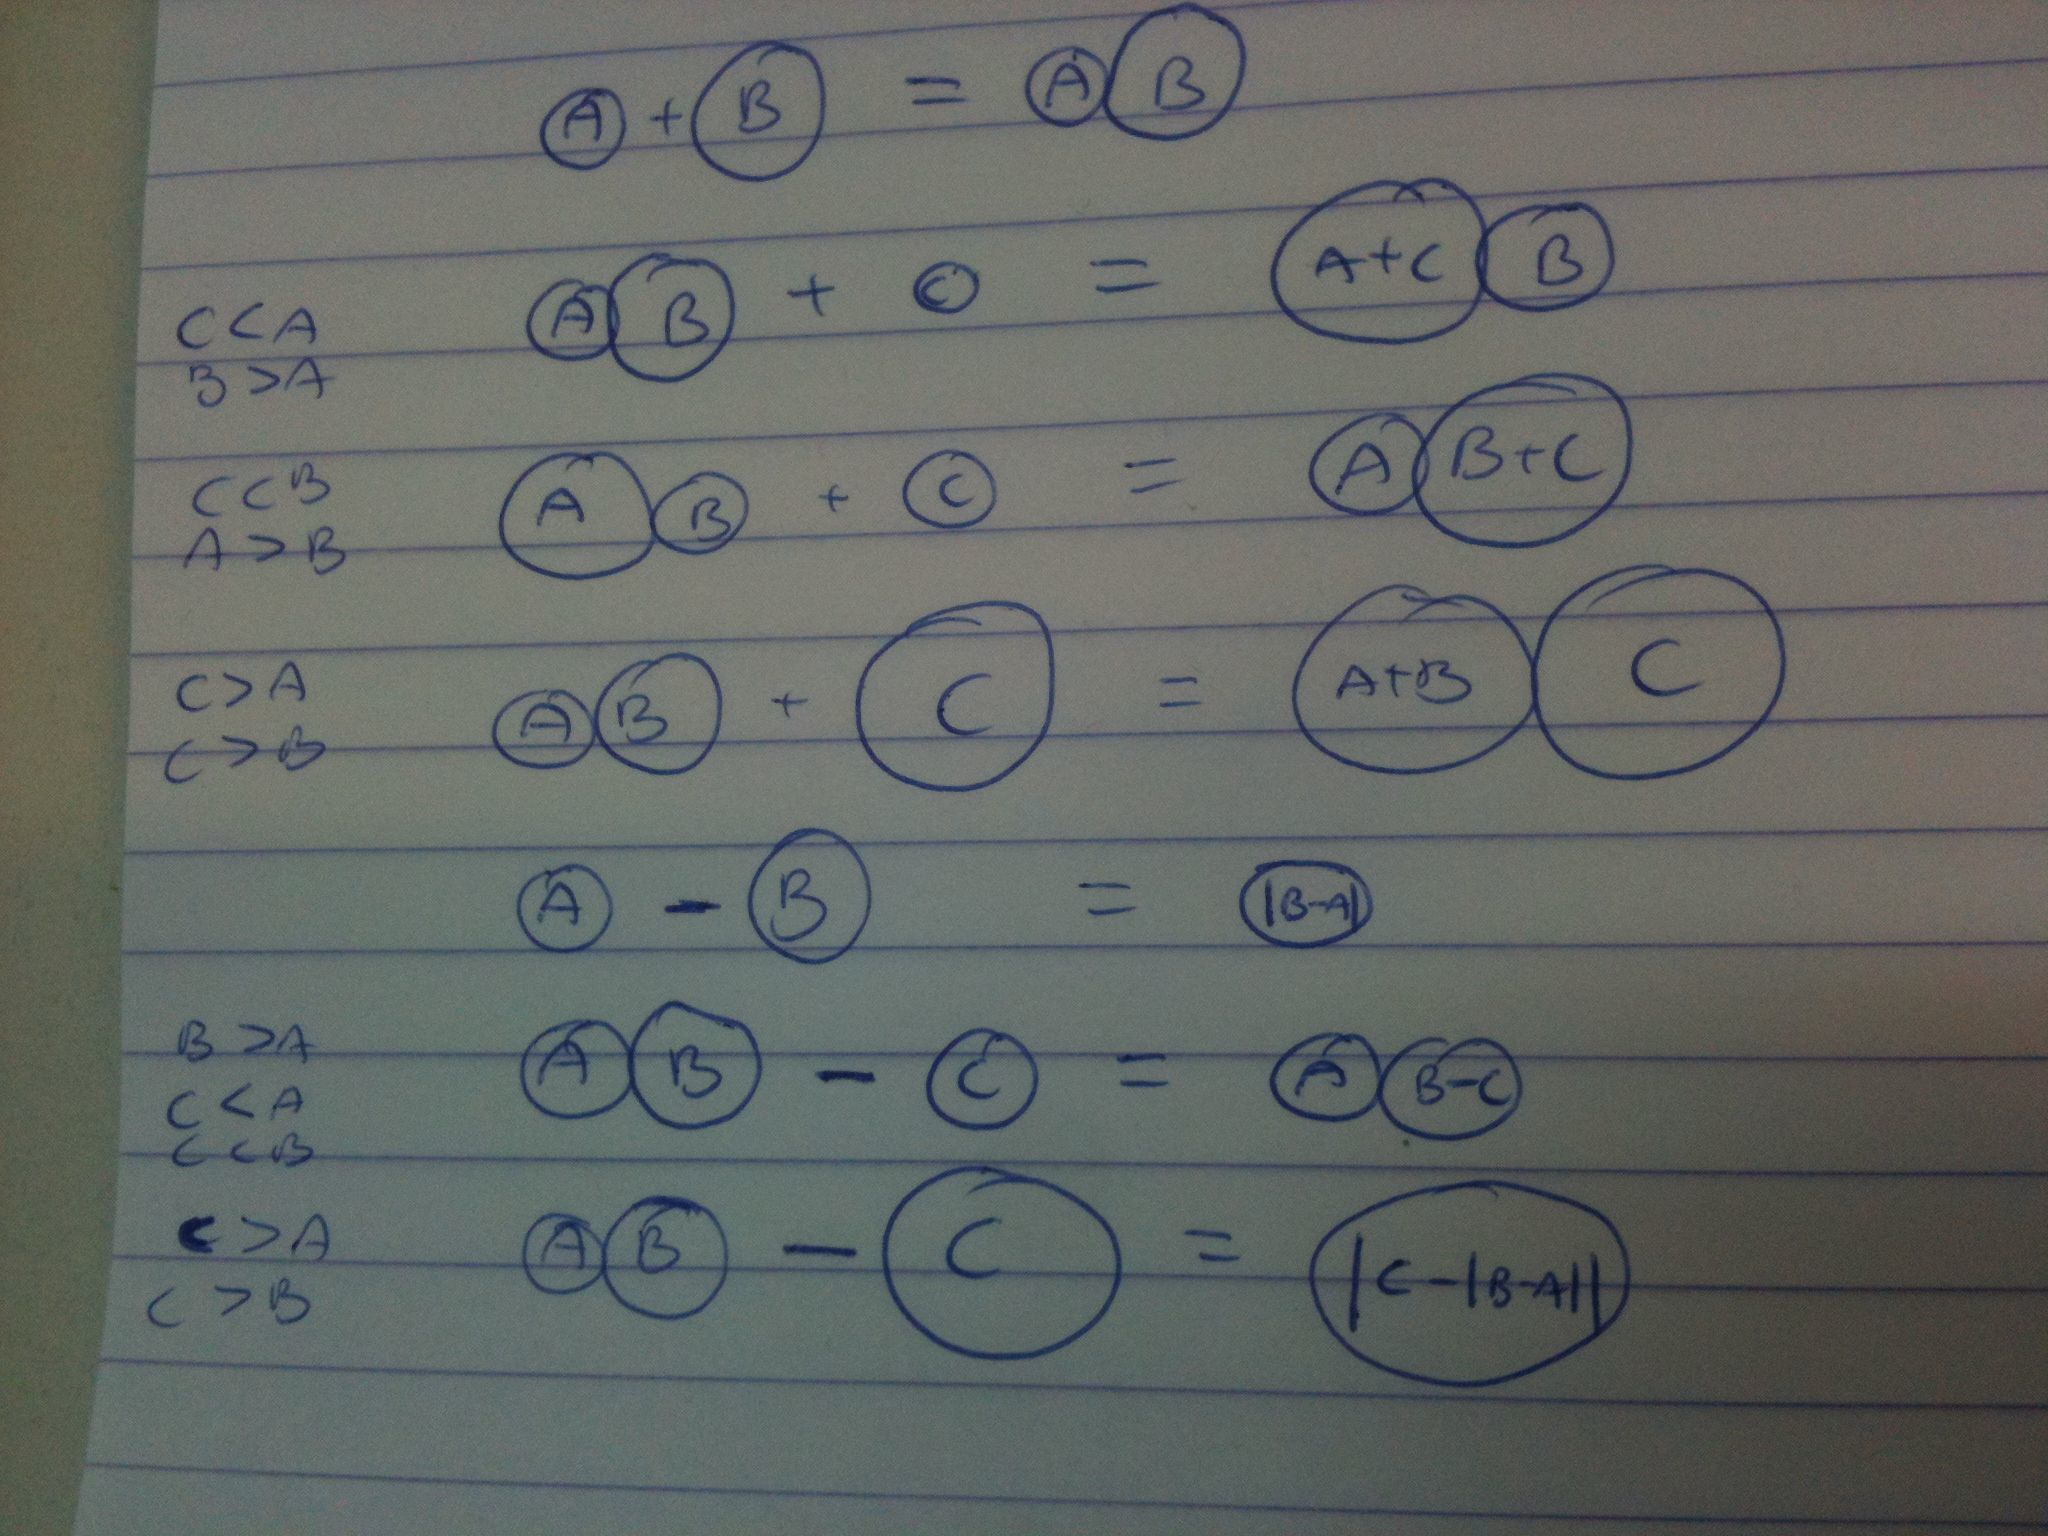 A + B = A B
C < A
B > A
A B + C = A+C B
C < B
A > B
A B + C = A B+C
C > A
C > B
A B + C = A+B C
A - B = |B-A|
B > A
C < A
C < B
A B - C = A B-C
C > A
C > B
A B - C = |C-|B-A||